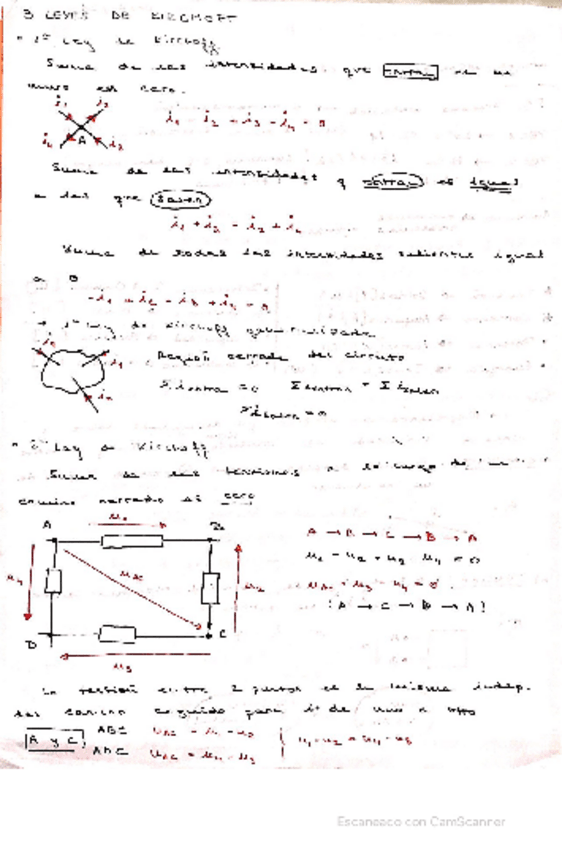 3 LEYES DE KIRCHOFF
1ª Ley de Kirchoff
Suma de las intensidades que entran en un
nudo es cero.
i₁ i₂
A
i₄ i₃
i₁ - i₂ + i₃ - i₄ = 0
Suma de las intensidades q entran es igual
a las que salen
i₁ + i₃ = i₂ + i₄
Suma de todas las intensidades salientes igual
a 0
-i₁ + i₂ - i₃ + i₄ = 0
→ 1ª Ley de Kirchoff generalizada
Región cerrada del circuito
Σ i entra = 0 Σ i entran = Σ i salen
Σ i salen = 0
2ª Ley de Kirchoff
Suma de las tensiones a lo largo de un
camino cerrado es cero
A u₁ B
u₄ u_AC u₂
D C
u₃
A → B → C → D → A
u₁ - u₂ + u₃ - u₄ = 0
u_AC + u₃ - u₄ = 0
(A → C → D → A)
La tensión entre 2 puntos es la misma indep.
del camino seguido para ir de uno a otro
A y C
ABC u_AC = u₁ - u₂
ADC u_AC = u₄ - u₃
u₁ - u₂ = u₄ - u₃
Escaneado con CamScanner